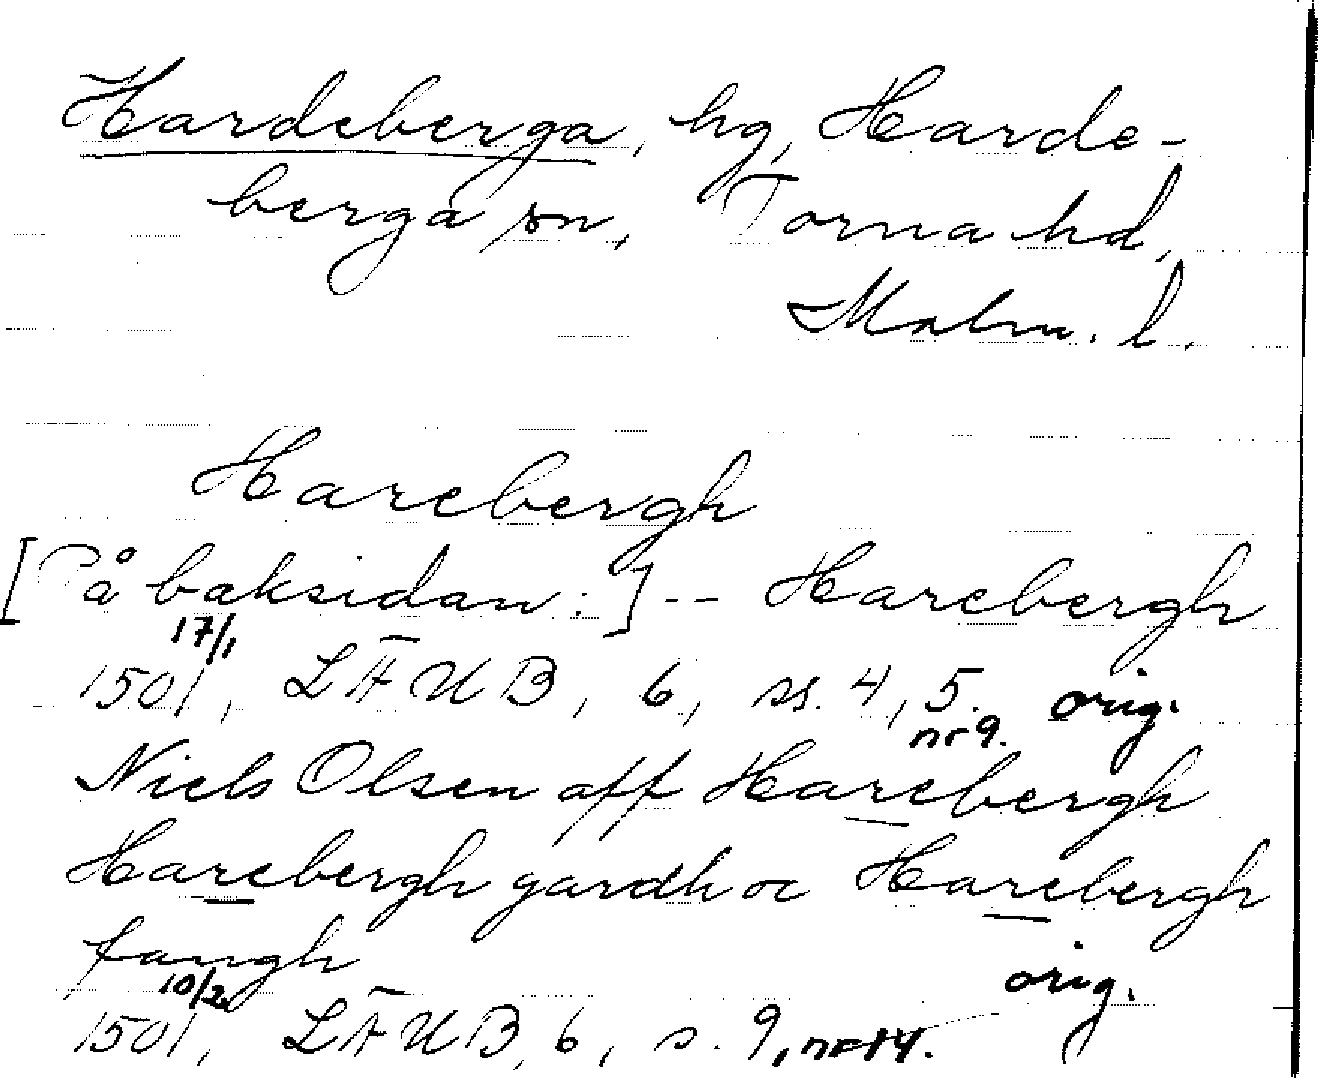 Hardeberga, hg, Harde-
berga sn, Torna hd,
Malm. l.
Harebergh
[På baksidan:] -- Harebergh
17/1
1501, LÄUB, 6, ss. 4, 5. orig.
nr 9.
Niels Olsen aff Harebergh
Harebergh gardh oc Harebergh
fangh
10/2 orig.
1501, LÄUB, 6, s. 9, nr 14.